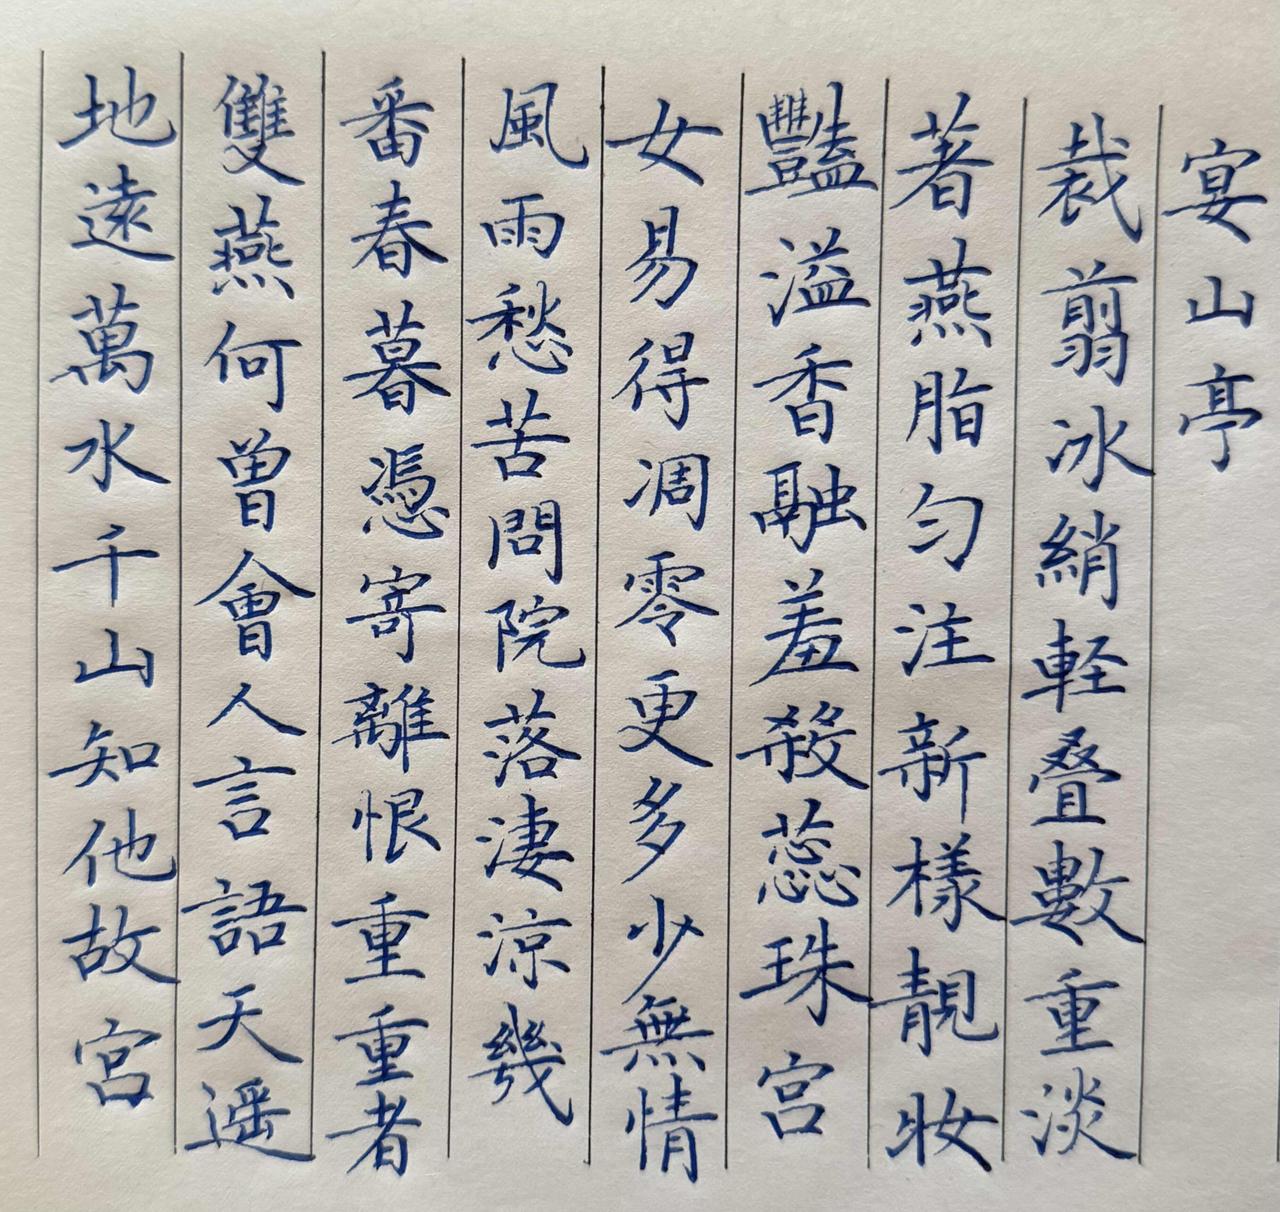 宴山亭
裁翦冰綃軽叠數重淡
著燕脂匀注新樣靚妝
豔溢香融羞殺蕊珠宮
女易得凋零更多少無情
風雨愁苦問院落淒涼幾
番春暮憑寄離恨重重者
雙燕何曾會人言語天遥
地遠萬水千山知他故宮